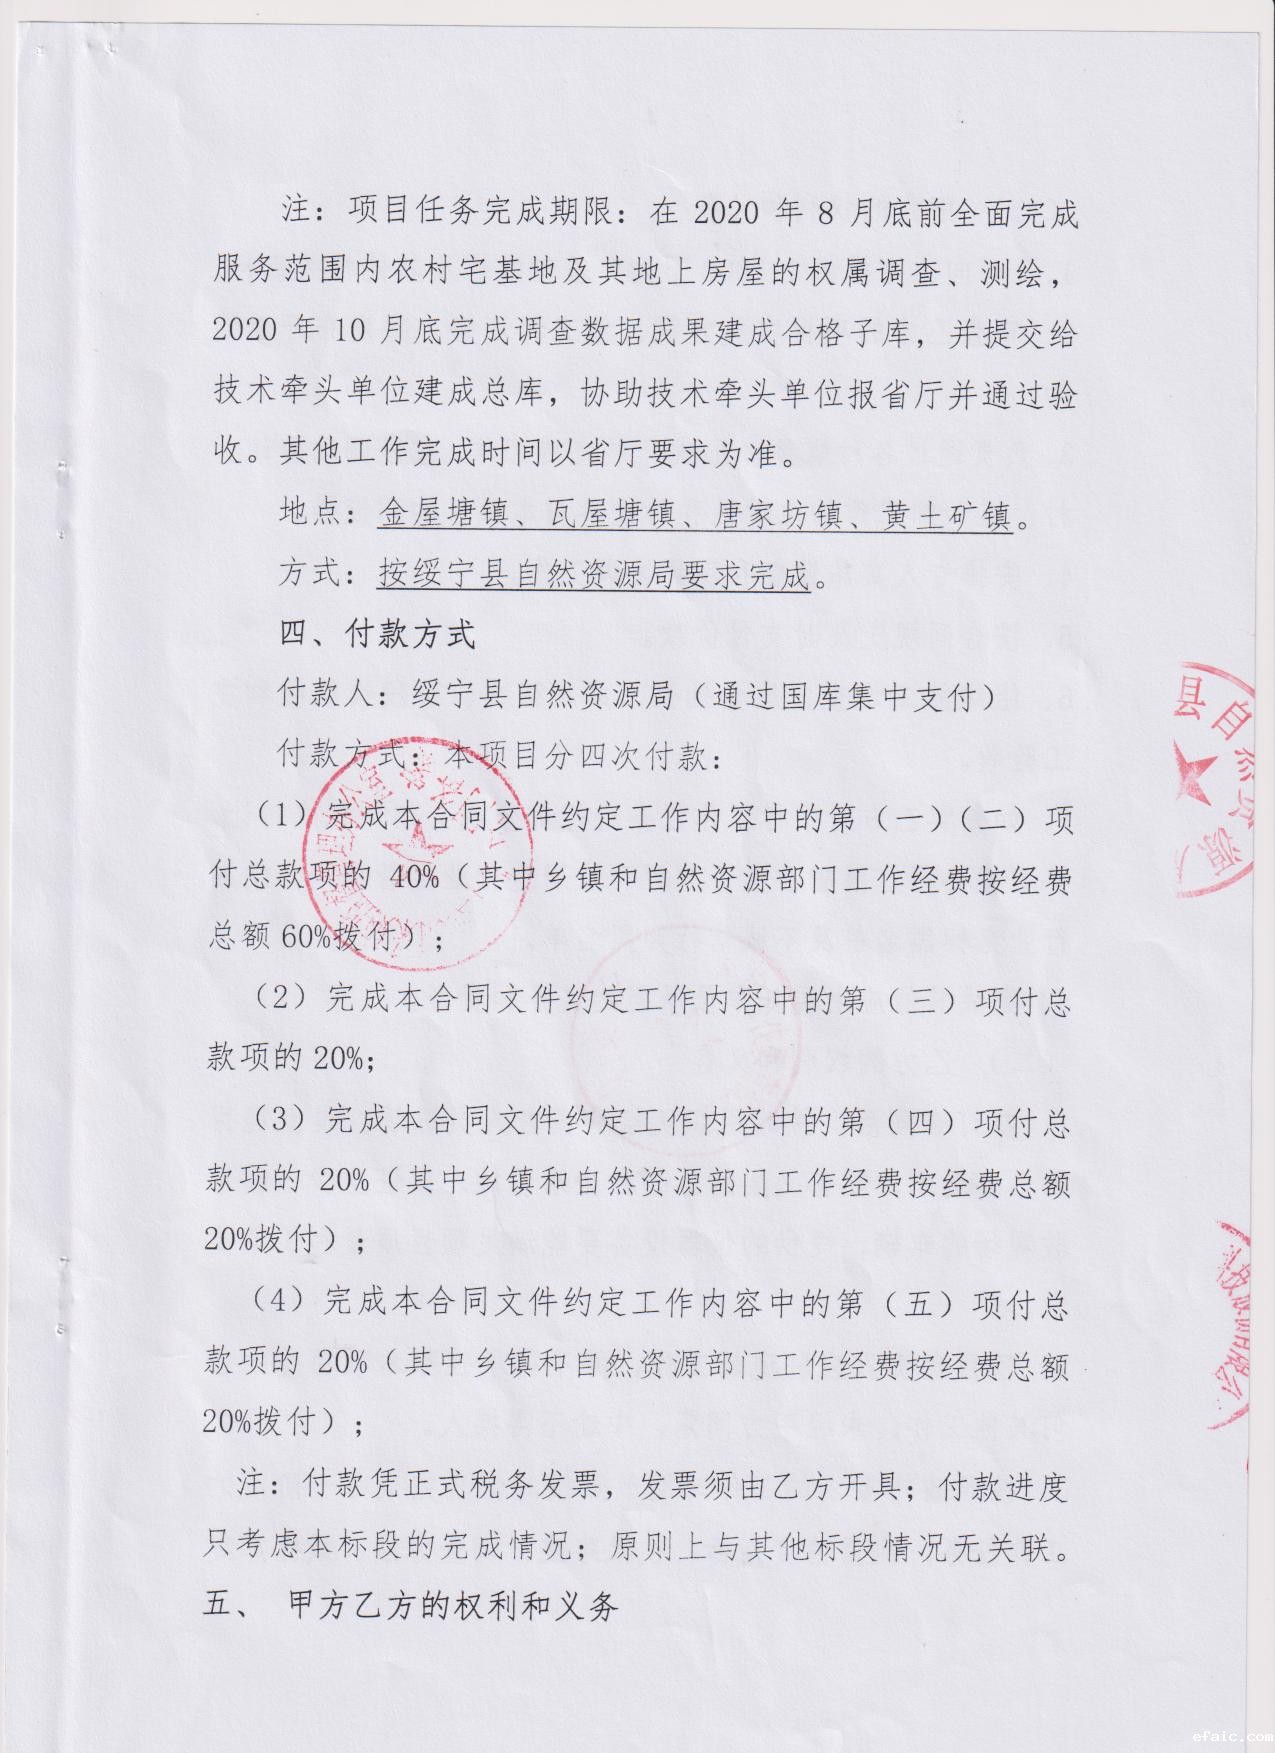 注：项目任务完成期限：在 2020 年 8 月底前全面完成
服务范围内农村宅基地及其地上房屋的权属调查、测绘，
2020 年 10 月底完成调查数据成果建成合格子库，并提交给
技术牵头单位建成总库，协助技术牵头单位报省厅并通过验
收。其他工作完成时间以省厅要求为准。
地点：金屋塘镇、瓦屋塘镇、唐家坊镇、黄土矿镇。
方式：按绥宁县自然资源局要求完成。
四、付款方式
付款人：绥宁县自然资源局（通过国库集中支付）
付款方式：本项目分四次付款：
（1）完成本合同文件约定工作内容中的第（一）（二）项
付总款项的 40%（其中乡镇和自然资源部门工作经费按经费
总额 60%拨付）；
（2）完成本合同文件约定工作内容中的第（三）项付总
款项的 20%；
（3）完成本合同文件约定工作内容中的第（四）项付总
款项的 20%（其中乡镇和自然资源部门工作经费按经费总额
20%拨付）；
（4）完成本合同文件约定工作内容中的第（五）项付总
款项的 20%（其中乡镇和自然资源部门工作经费按经费总额
20%拨付）；
注：付款凭正式税务发票，发票须由乙方开具；付款进度
只考虑本标段的完成情况；原则上与其他标段情况无关联。
五、 甲方乙方的权利和义务
县自然资源
efaic.com